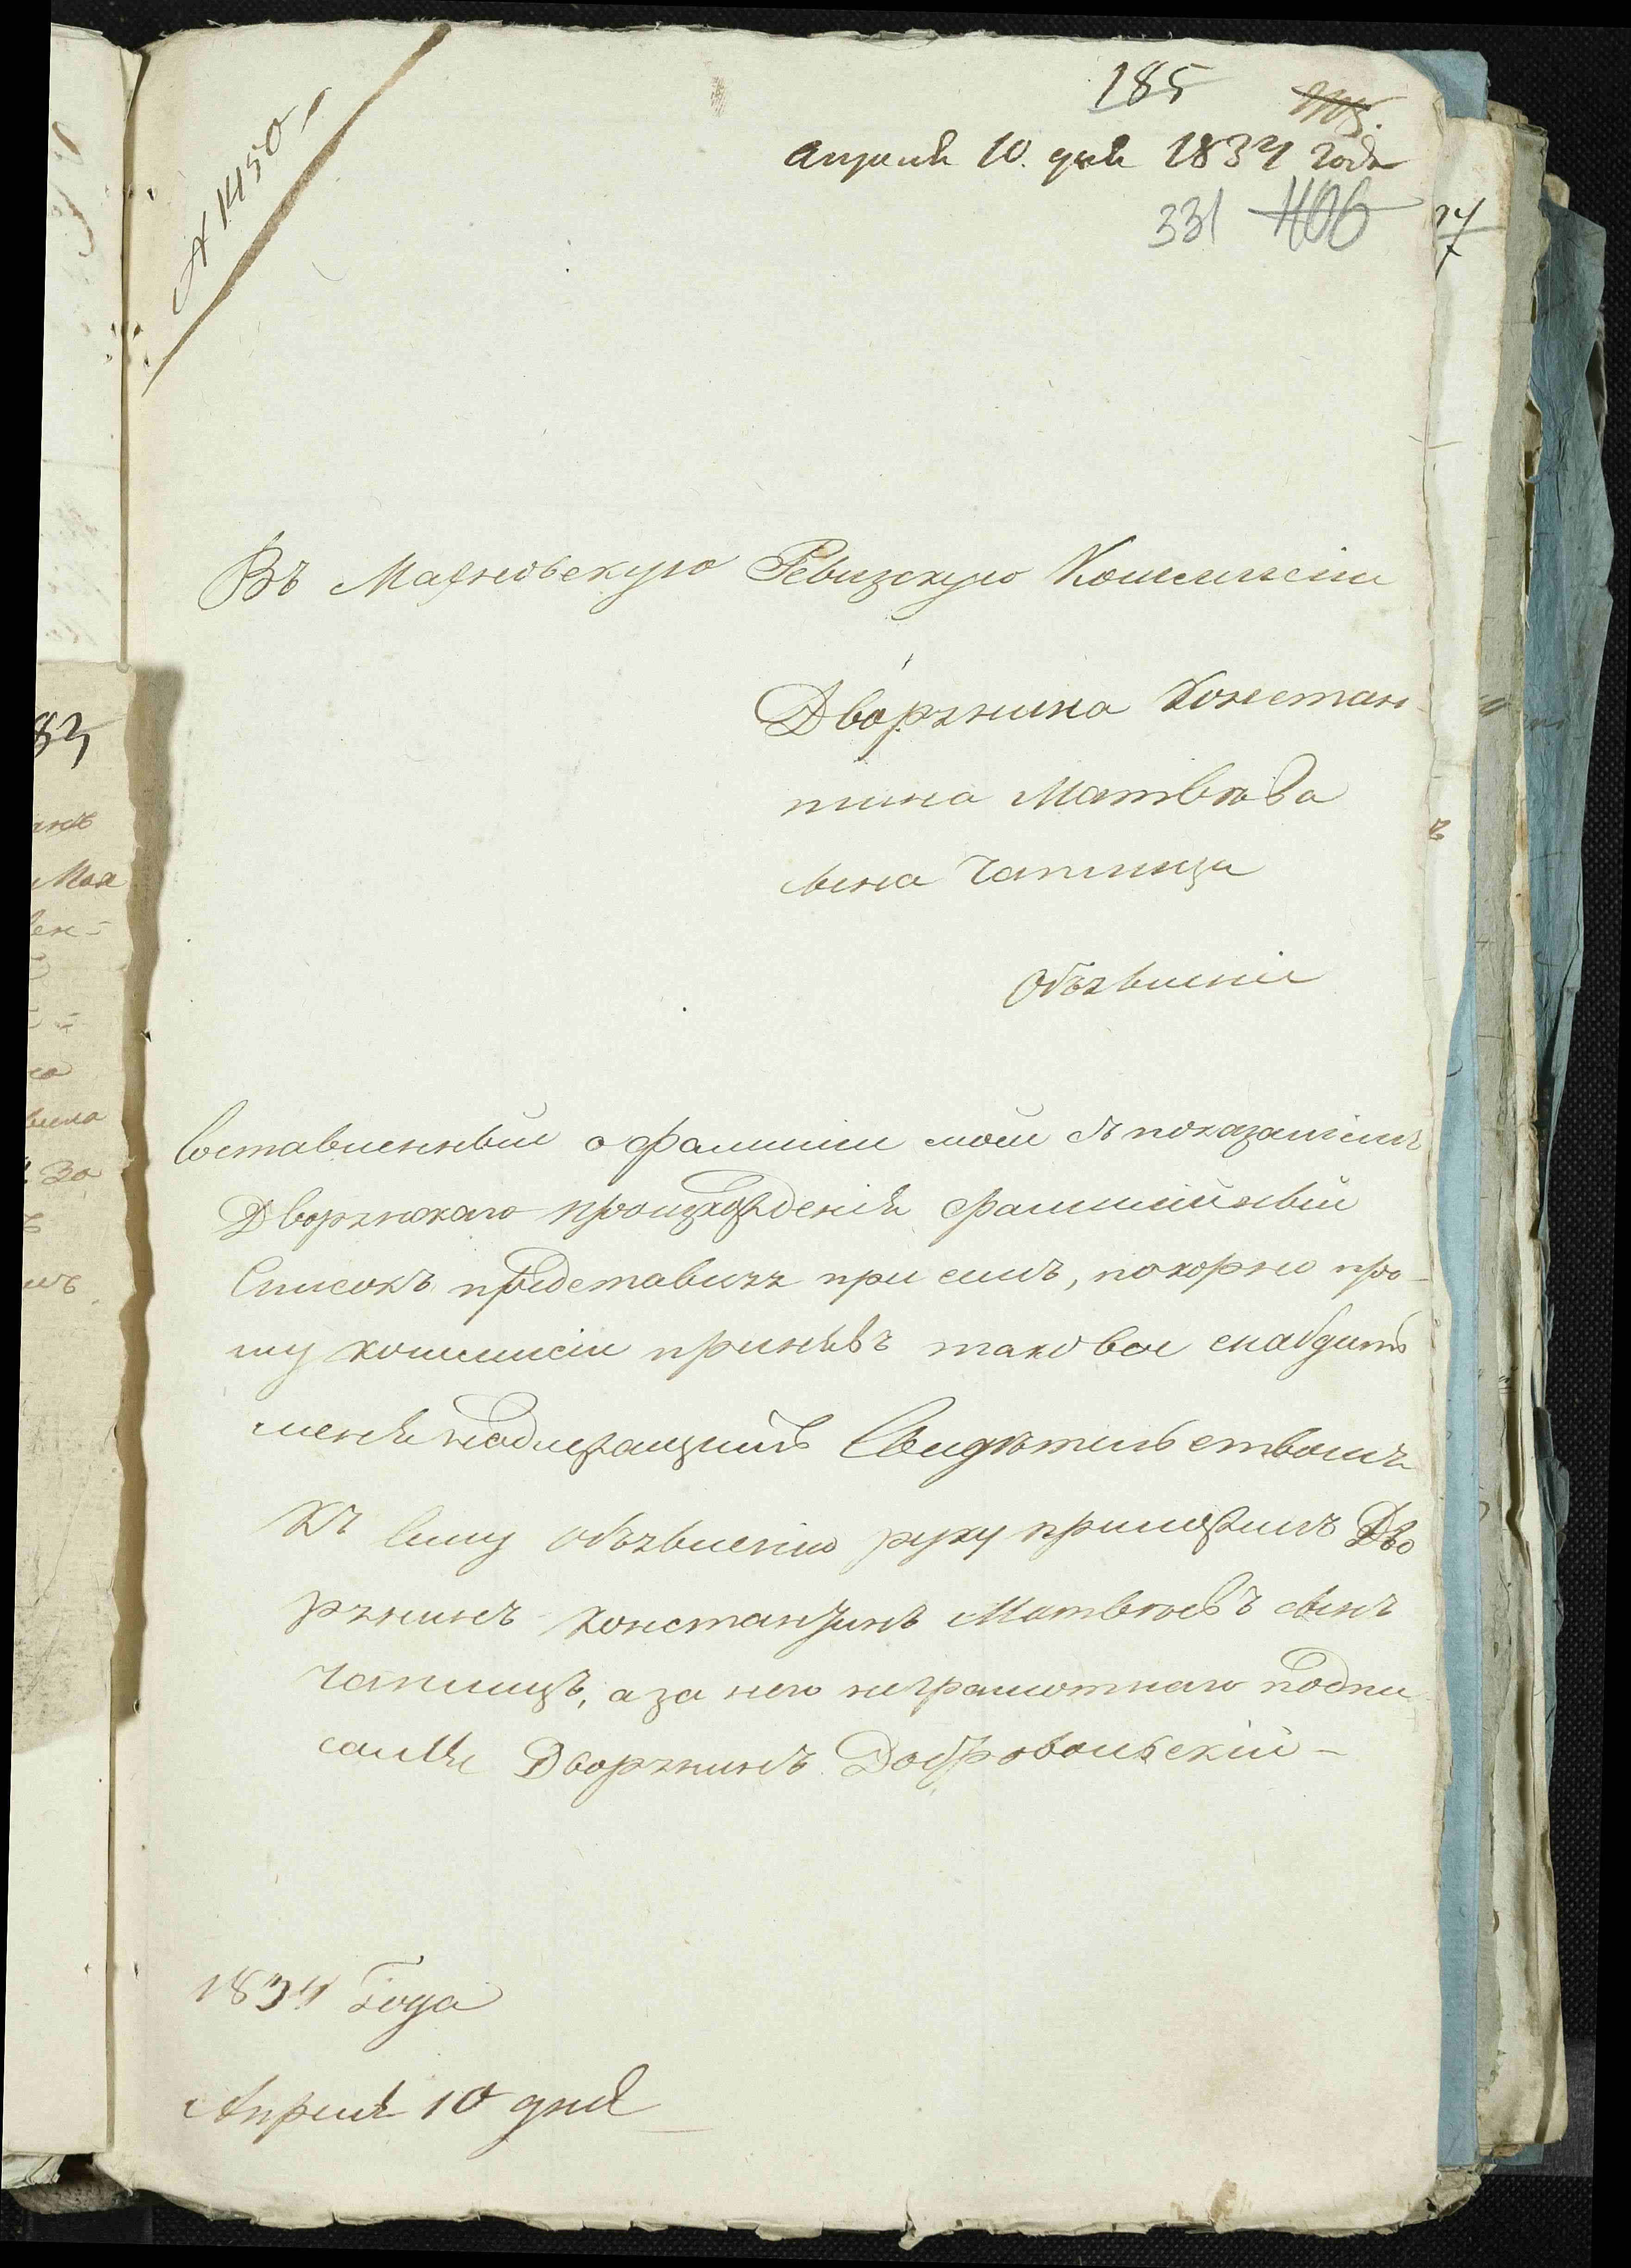 185
№ 1450
Апреля 10. дня 1834 года
331 406
Въ Махновскую Ревизскую Коммисiи
Дворянина Констан-
тина Матвѣева
сына Чаплица
Объявленiе
Составленный о фамилiи моей съ показанiемъ
Дворянскаго происхожденiя фамилiйный
Списокъ представляя при семъ, покорно про-
шу коммисiи принявъ таковое снабдить
меня надлежащимъ Свидѣтельствомъ
Къ сему объявленiю руку приложилъ Дво
рянинъ Константинъ Матвѣевъ сынъ
Чаплицъ, а за него неграмотнаго подпи
сался Дворянинъ Добровольскiй –
1834 Года
Апреля 10 дня